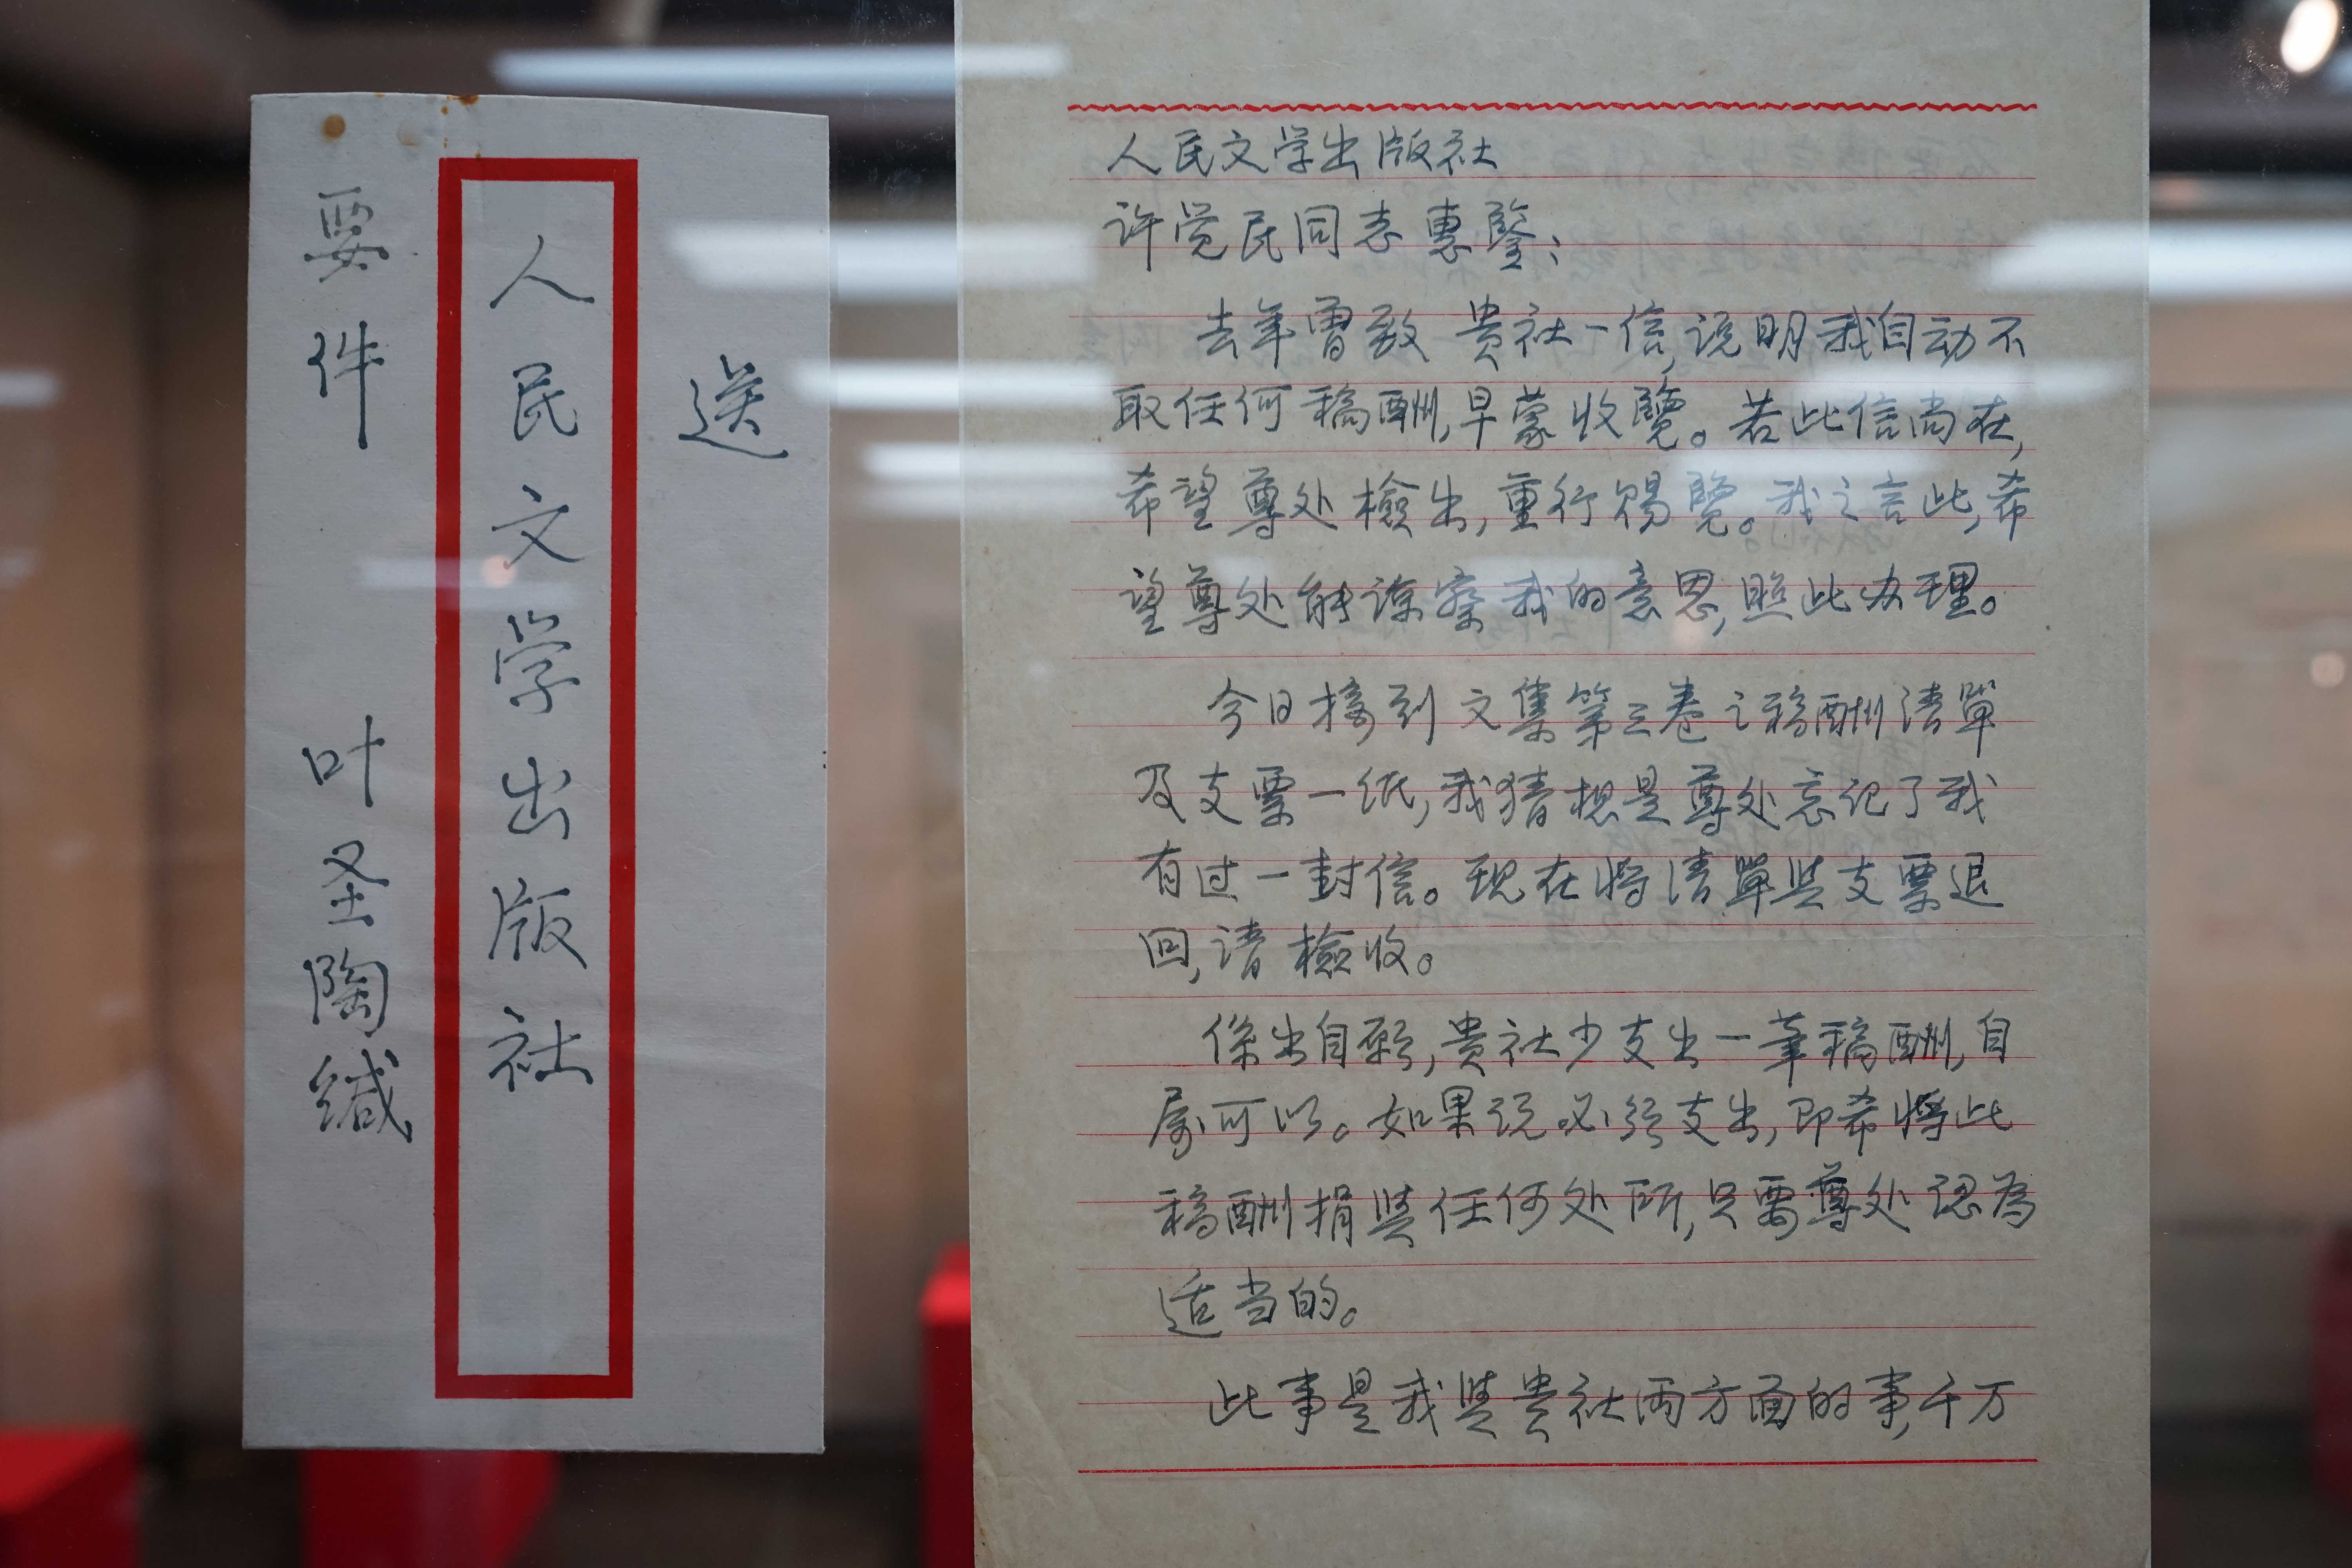 送
人民文学出版社
要件 叶圣陶缄
人民文学出版社
许觉民同志惠鑒：
去年曾致 贵社一信，说明我自动不
取任何稿酬，早蒙收覽。若此信尚在，
希望尊处檢出，重行赐覽。我之言此，希
望尊处能谅察我的意思，照此办理。
今日接到文集第三卷之稿酬清單
及支票一纸，我猜想是尊处忘记了我
有过一封信。现在将清單与支票退
回，请檢收。
係出自愿，贵社少支出一筆稿酬，自
属可以。如果说必须支出，即希将此
稿酬捐与任何处所，只需尊处認為
适当的。
此事是我与贵社两方面的事，千万